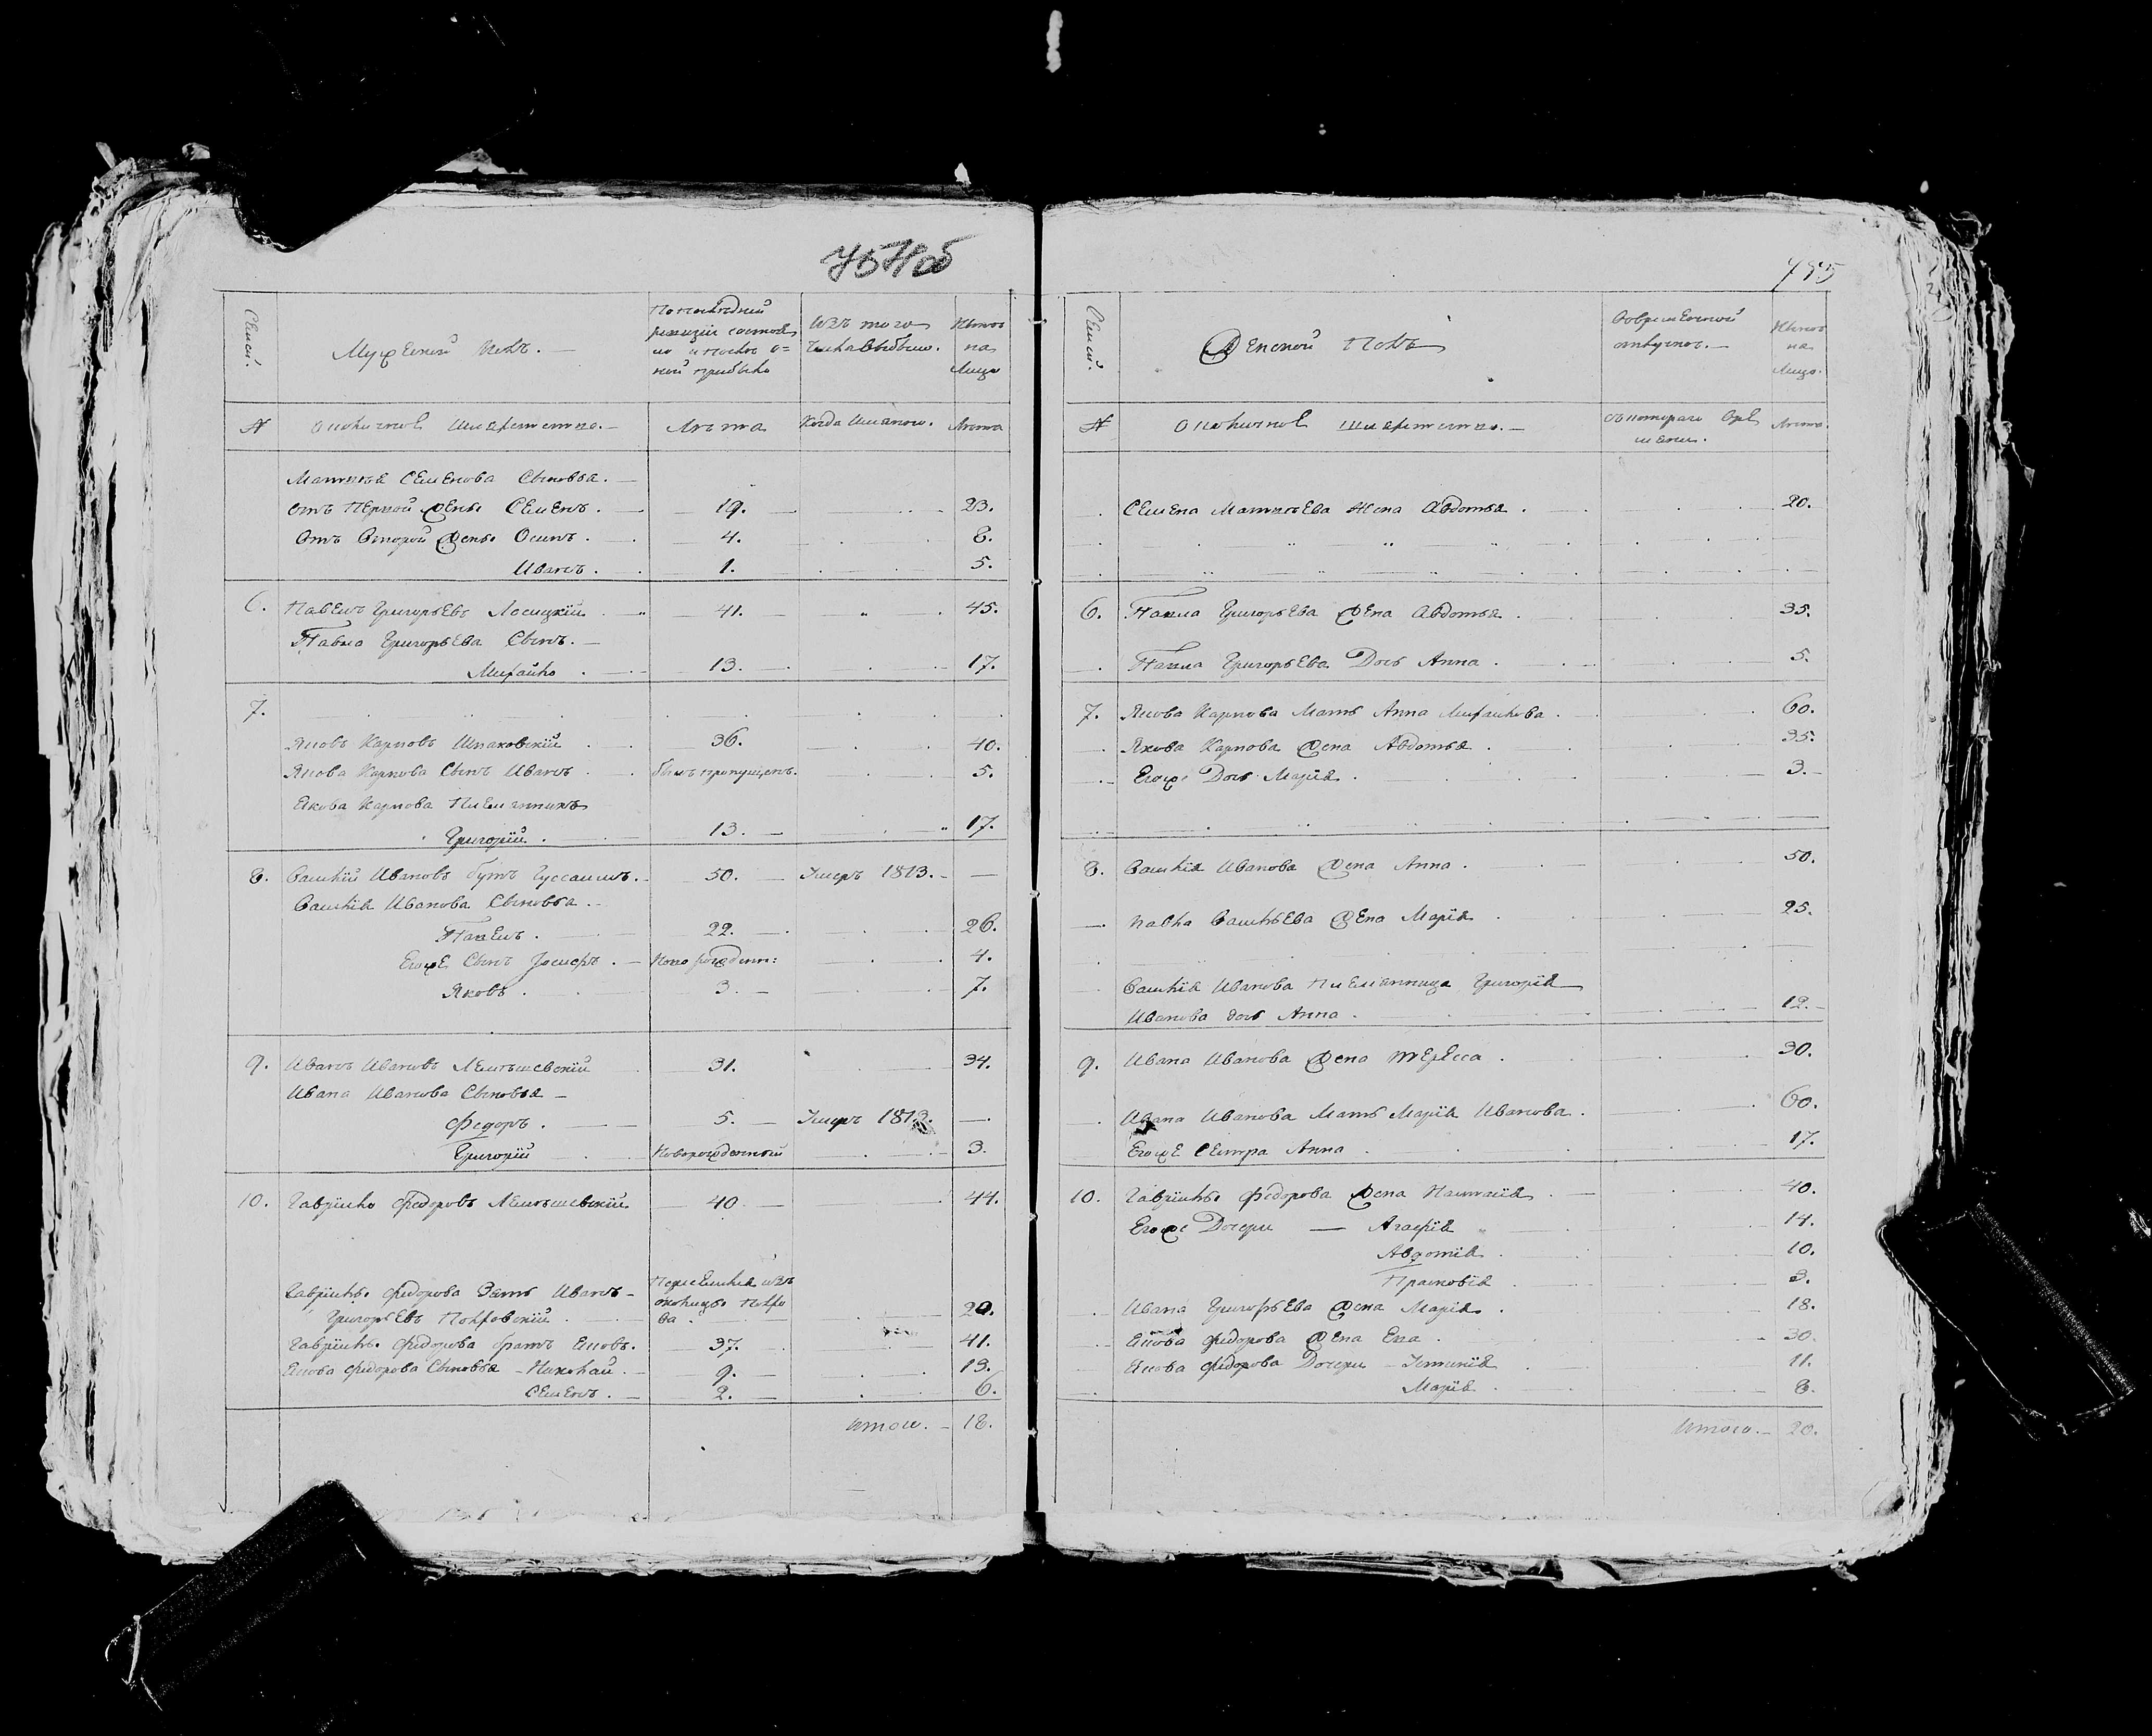 785
Семьи.
Мужеский полъ. —
По последней
ревизіи состоя
ло и после о=
ной прибыло
Изъ того
числа выбыло.
Ныне
на
Лицо
№
околичной шляхетства. —
Лета
Когда именно.
Лета
Матвея Семенова Сыновья. —
отъ первой жены Семенъ. — 19. — 23.
Отъ Второй жены Осипъ. 4. — 8.
Иванъ. 1. 5.
6. Павелъ Григорьевъ Лосицкій — 41. — 45.
Павла Григорьева Сынъ. —
Михайло 13. — 17.
7.
Яковъ Карповъ Шпаковскій 36. 40.
Якова Карпова Сынъ Иванъ былъ пропущенъ. 5.
Якова Карпова Племянникъ
Григорій. 13. — 17.
8. Василій Ивановъ 50. — Умеръ 1813. — —
Василія Иванова Сыновья. —
Павелъ. 22. — 26.
Егоже Сынъ — Новорожден: 4.
Яковъ. 3. — 7.
9. Иванъ Ивановъ 31. 34.
Ивана Иванова Сыновья —
Федоръ. — 5. — Умеръ 1813. —
Григорій Новорожденный 3.
10. Гаврило Федоровъ — 40 — 44.
Гаврилы Федорова Зять Иванъ —
Григорьевъ Покровскій
Переселился изъ
околицы Покро
ва. 20.
Гаврилы Федорова братъ Яковъ. — 37. — 41.
Якова Федорова Сыновья — Николай. — 9. — 13.
Семенъ. — 2. — 6.
Итого. — 18.
Семьи.
Женской Полъ
Во временной
отлучке. —
Ныне
на
Лицо.
№
околичной шляхетства. —
съ котораго вре
мени.
Лета.
Семена Матвеева Жена Авдотья. 20.
6. Павла Григорьева Жена Авдотья. 35.
Павла Григорьева Дочь Анна. 5.
7. Якова Карпова Мать Анна Михайлова. 60.
Якова Карпова Жена Авдотья. 35.
Егоже Дочь Марія. 3. —
8. Василія Иванова Жена Анна. 50.
Павла Васильева Жена Марія 25.
Василія Иванова Племянница Григорія
Иванова дочь Анна. 12. —
9. Ивана Иванова Жена Тересса. 30.
Ивана Иванова Мать Марія Иванова. 60.
Егоже Сестра Анна 17.
10. Гаврилы Федорова Жена Настасія 40.
Егоже Дочери — Агафія 14.
Авдотія. 10.
Прасковія 3.
Ивана Григорьева Жена Марія. 18.
Якова Федорова Жена Ева. 30.
Якова Федорова Дочери — Устинія 11.
Марія. 8.
Итого. — 20.